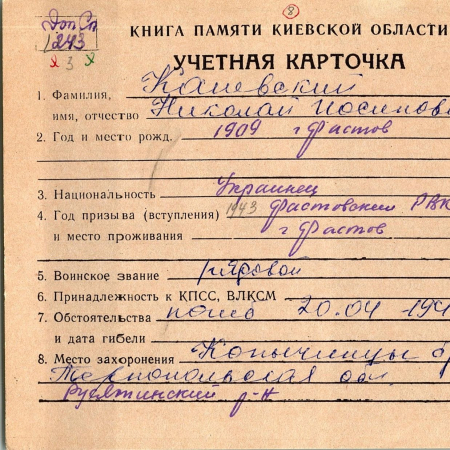 8
Доп Сп
1243
3
КНИГА ПАМЯТИ КИЕВСКОЙ ОБЛАСТИ
УЧЕТНАЯ КАРТОЧКА
1. Фамилия, Каневский
имя, отчество Николай Иосипов
2. Год и место рожд. 1909 г Фастов
3. Национальность Украинец
4. Год призыва (вступления) 1943 Фастовским РВК
и место проживания г Фастов
5. Воинское звание рядовой
6. Принадлежность к КПСС, ВЛКСМ
7. Обстоятельства погиб 20.04 194
и дата гибели
8. Место захоронения Копычинцы
Тернопольская обл
Гусятинский р-н